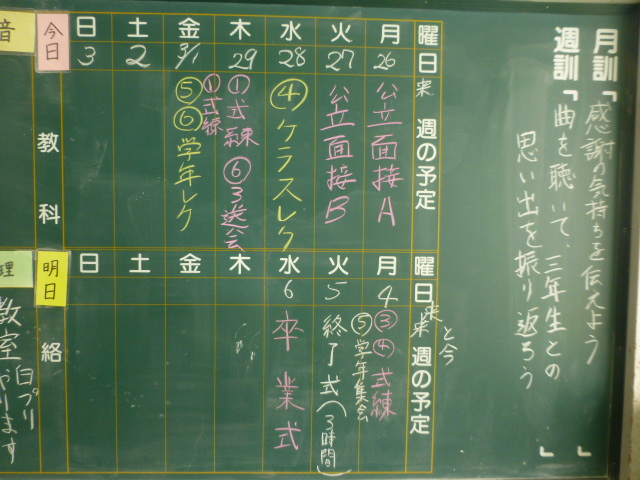 月訓「感謝の気持ちを伝えよう」
週訓「曲を聴いて、三年生との
思い出を振り返ろう」
曜 月 火 水 木 金 土 日
日 26 27 28 29 3/1 2 3
来週の予定
公立面接A
公立面接B
④クラスレク
①式練 ⑥3送会
①式練
⑤⑥学年レク
今日
教科
音
曜 月 火 水 木 金 土 日
日 4 5 6
来来週の予定
と今
③④式練
⑤学年集会
終了式(3時間)
卒業式
明日
絡
理
教室
白プリ
やります